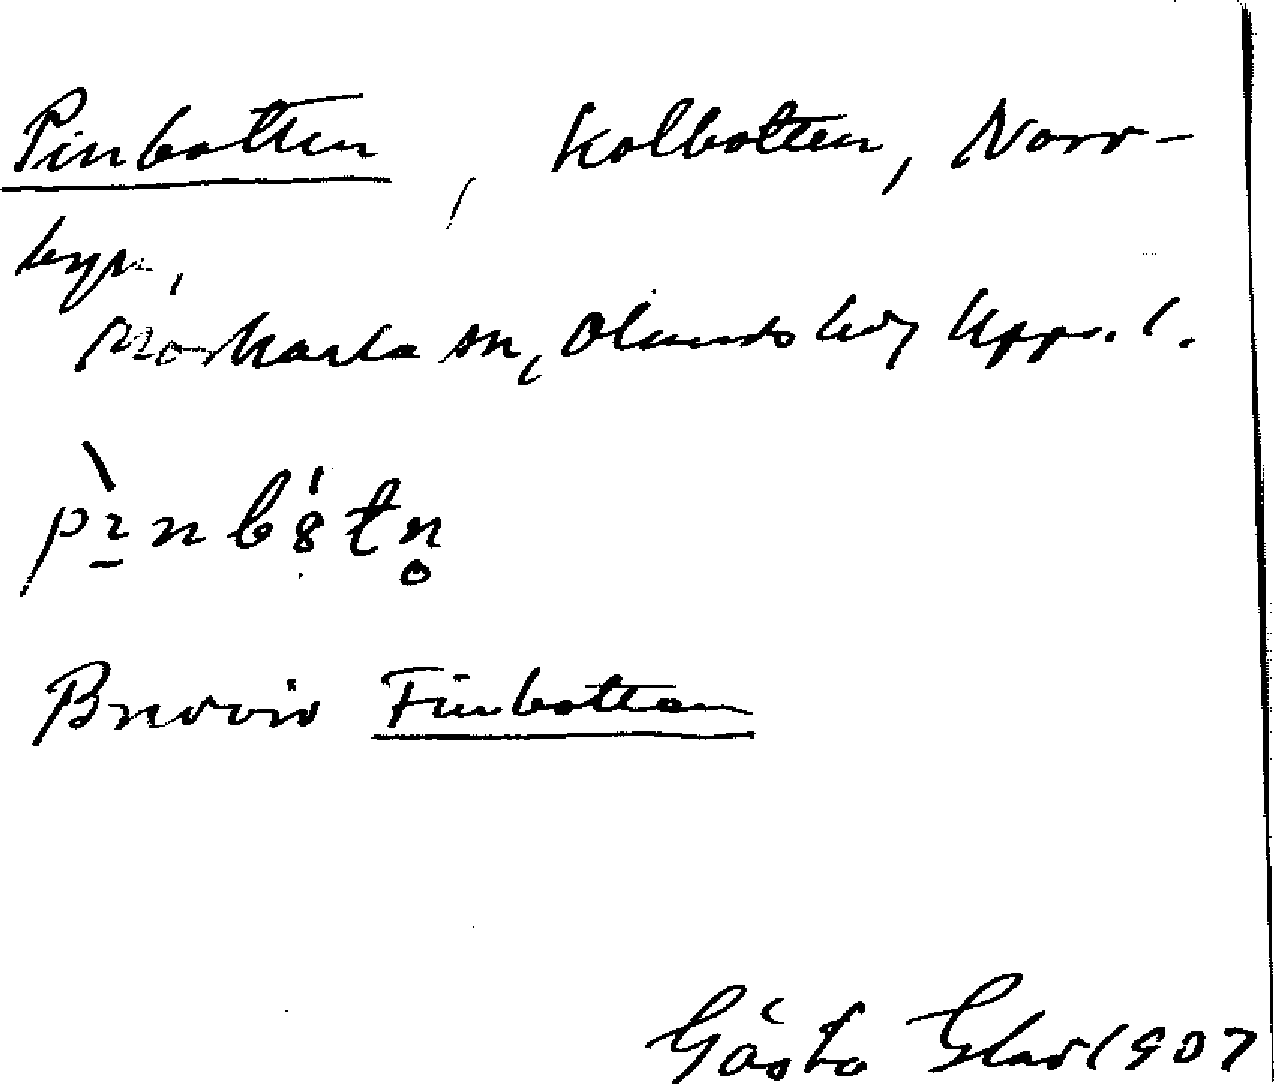 Pinbotten, Kolbotten, Norr-
byn,
Morkarla sn, Olands hd, Upps. l.
pìnbótn̥
Bredvid Finbottan
Gösta Elav 1907